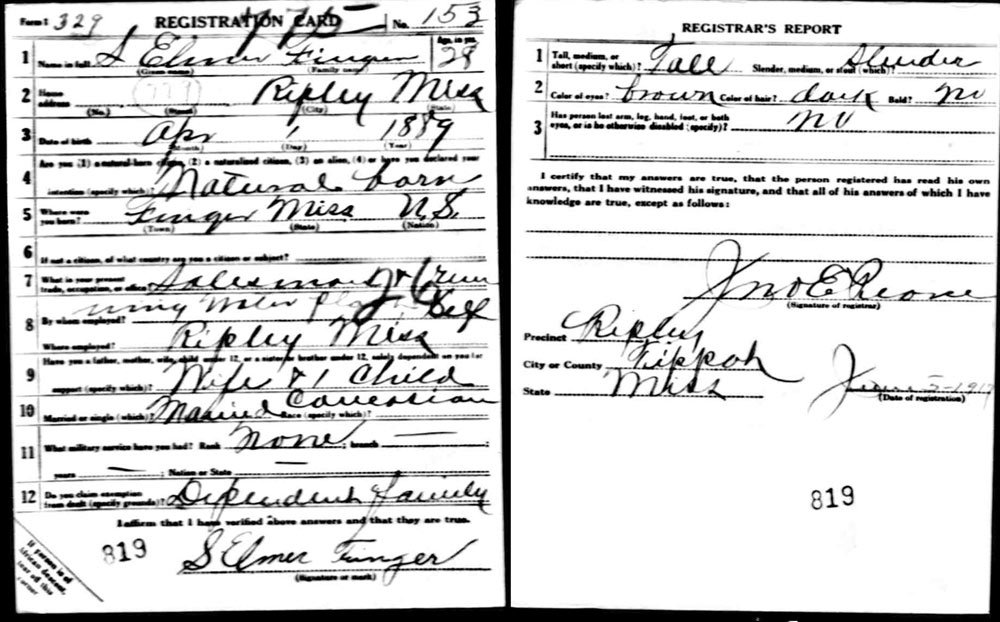 Form 1 329 REGISTRATION CARD No. 153
1 Name in full S Elmer Finger Age, in yrs. 28
(Given name) (Family name)
2 Home address Ripley Miss
(No.) (Street) (City) (State)
3 Date of birth Apr 1 1889
(Month) (Day) (Year)
Are you (1) a natural-born citizen, (2) a naturalized citizen, (3) an alien, (4) or have you declared your
4 intention (specify which)? Natural born
5 Where were you born? Finger Miss U.S.
(Town) (State) (Nation)
6 If not a citizen, of what country are you a citizen or subject?
7 What is your present trade, occupation, or office? Salesman
8 By whom employed? Self
Where employed? Ripley Miss
Have you a father, mother, wife, child under 12, or a sister or brother under 12, solely dependent on you for
9 support (specify which)? Wife & 1 Child
10 Married or single (which)? Married Race (specify which)? Caucasian
11 What military service have you had? Rank None ; branch — ;
years — ; Nation or State —
12 Do you claim exemption from draft (specify grounds)? Dependent family
I affirm that I have verified above answers and that they are true.
819
S Elmer Finger
(Signature or mark)
If person is of
African descent,
tear off this
corner
REGISTRAR'S REPORT
1 Tall, medium, or short (specify which)? Tall Slender, medium, or stout (which)? Slender
2 Color of eyes? brown Color of hair? dark Bald? No
3 Has person lost arm, leg, hand, foot, or both eyes, or is he otherwise disabled (specify)? No
I certify that my answers are true, that the person registered has read his own
answers, that I have witnessed his signature, and that all of his answers of which I have
knowledge are true, except as follows:
Jno E
(Signature of registrar)
Precinct Ripley
City or County Tippah
State Miss
June 5-1917
(Date of registration)
819